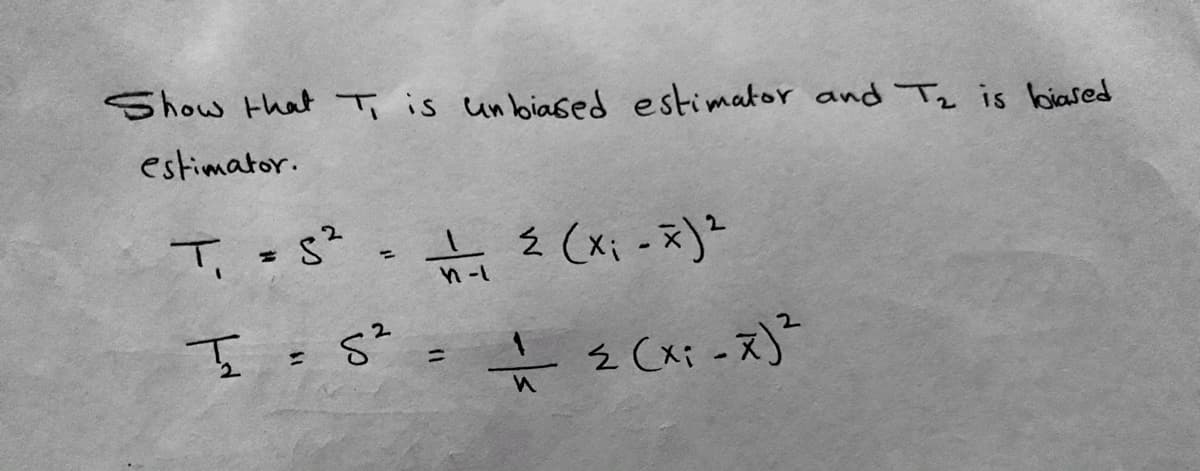 Show that T₁ is unbiased estimator and T₂ is biased
estimator.
T₁ = S² = 1/(n-1) Σ (xᵢ - x̄)²
T₂ = S² = 1/n Σ (xᵢ - x̄)²